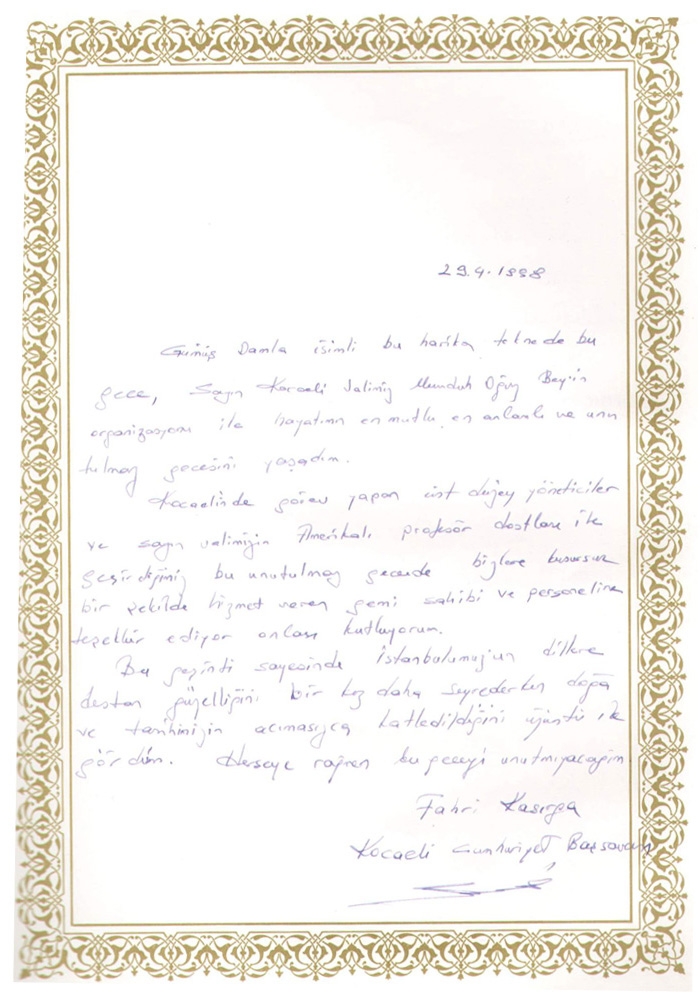 29.4.1998
Gümüş Damla isimli bu harika teknede bu
gece, Sayın Kocaeli Valimiz Memduh Oğuz Bey'in
organizasyonu ile hayatımın en mutlu, en anlamlı ve unu
tulmaz gecesini yaşadım.
Kocaelinde görev yapan üst düzey yöneticiler
ve sayın valimizin Amerikalı profesör dostları ile
geçirdiğimiz bu unutulmaz gecede bizlere kusursuz
bir şekilde hizmet veren gemi sahibi ve personeline
teşekkür ediyor onları kutluyorum.
Bu gezinti sayesinde İstanbulumuz'un dillere
destan güzelliğini bir kez daha seyrederken doğa
ve tarihimizin acımasızca katledildiğini üzüntü ile
gördüm. Herşeye rağmen bu geceyi unutmıyacağım.
Fahri Kasırga
Kocaeli Cumhuriyet Başsavcısı